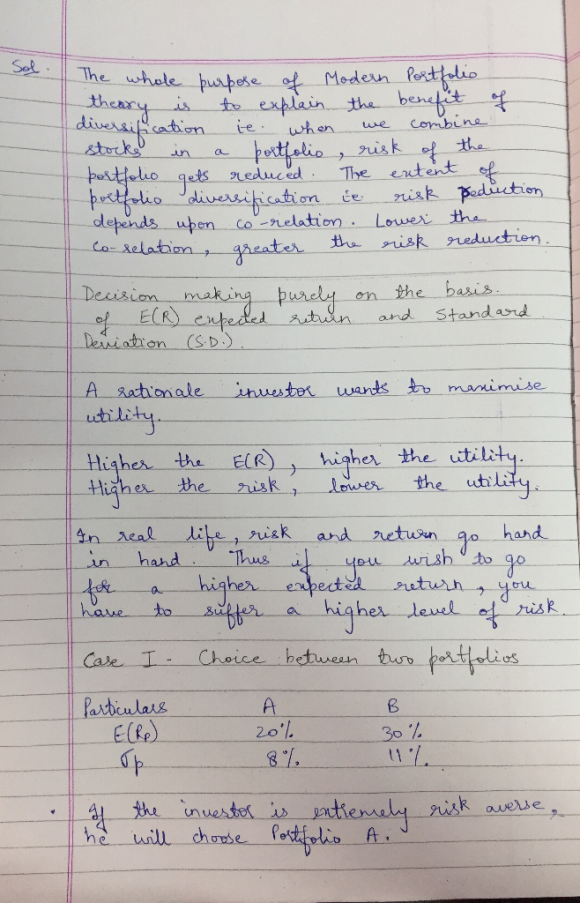 Sol.
The whole purpose of Modern Portfolio
theory is to explain the benefit of
diversification ie. when we combine
stocks in a portfolio, risk of the
portfolio gets reduced. The extent of
portfolio diversification ie risk reduction
depends upon co-relation. Lower the
co-relation, greater the risk reduction.
Decision making purely on the basis.
of E(R) expected return and Standard
Deviation (S.D.).
A rationale investor wants to maximise
utility.
Higher the E(R), higher the utility.
Higher the risk, lower the utility.
In real life, risk and return go hand
in hand. Thus if you wish to go
for a higher expected return, you
have to suffer a higher level of risk.
Case I - Choice between two portfolios
Particulars A B
E(Rp) 20% 30%
σp 8% 11%.
• If the investor is extremely risk averse,
he will choose Portfolio A.